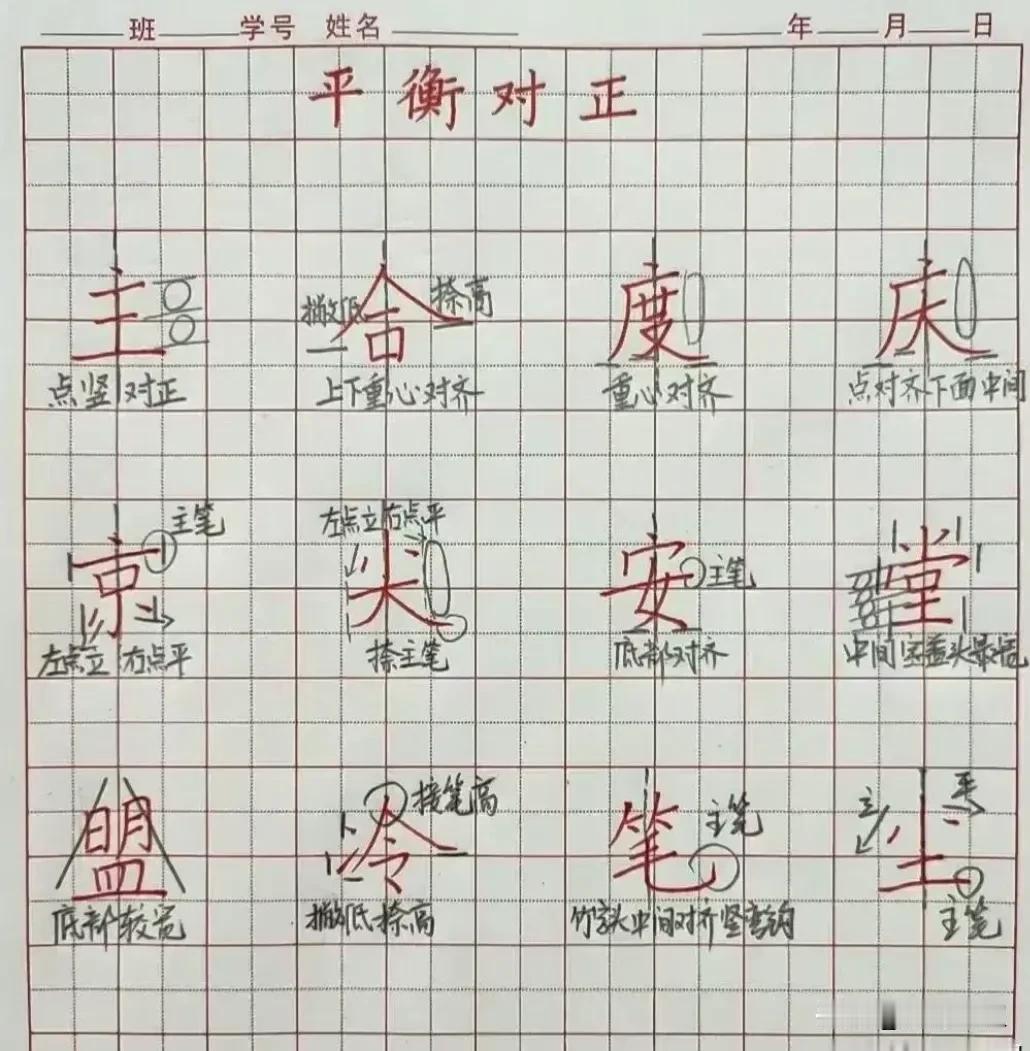 班 学号 姓名 年 月 日
平衡对正
主 合 度 庆
撇低 捺高
点竖对正 上下重心对齐 重心对齐 点对齐下面中间
主笔 左点立右点平
京 尖 安 堂
主笔
左点立右点平 捺主笔 底部对齐 中间宝盖头最宽
接笔高 主笔 立 平
盟 令 笔 尘
底部较宽 撇低捺高 竹字头中间对齐竖弯钩 主笔